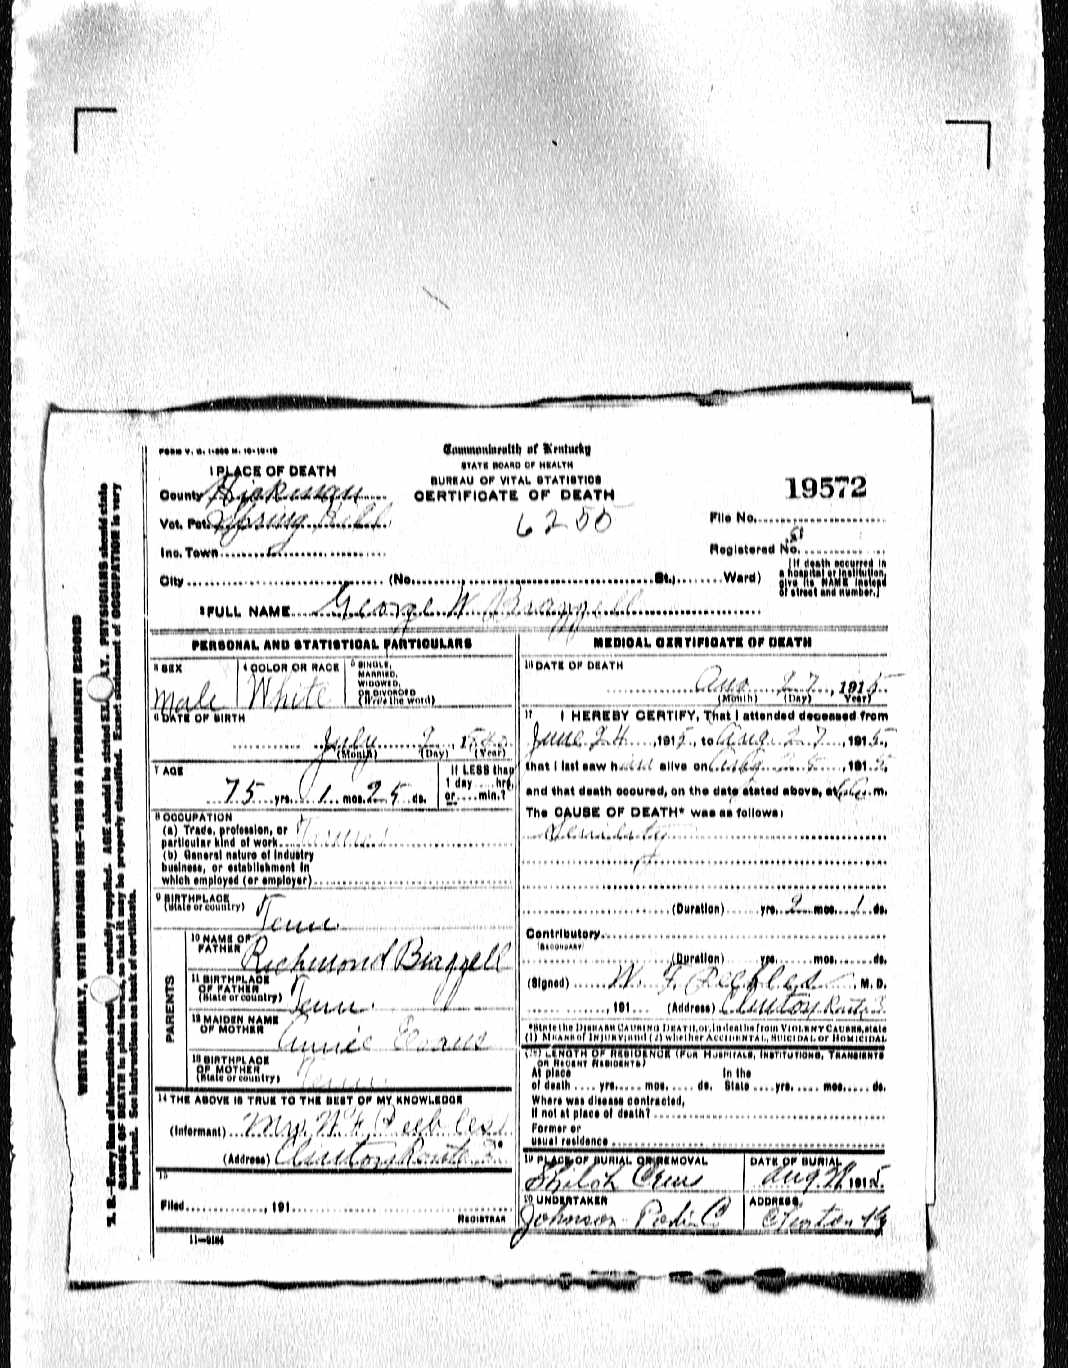 FORM V. S. 1-
Commonwealth of Kentucky
STATE BOARD OF HEALTH
BUREAU OF VITAL STATISTICS
CERTIFICATE OF DEATH
1 PLACE OF DEATH
County Hickman
Vot. Pct. Spring Hill
Inc. Town
City (No. St.; Ward)
6255
19572
File No.
Registered No.
[If death occurred in
a hospital or institution,
give its NAME instead
of street and number.]
2 FULL NAME George W. Brazzell
PERSONAL AND STATISTICAL PARTICULARS
3 SEX
Male
4 COLOR OR RACE
White
5 SINGLE,
MARRIED,
WIDOWED,
OR DIVORCED
(Write the word)
6 DATE OF BIRTH
July 2, 1840
(Month) (Day) (Year)
7 AGE
75 yrs. 1 mos. 25 ds.
If LESS than
1 day hrs.
or min.?
8 OCCUPATION
(a) Trade, profession, or
particular kind of work Farmer
(b) General nature of industry
business, or establishment in
which employed (or employer)
9 BIRTHPLACE
(State or country) Tenn.
PARENTS
10 NAME OF
FATHER Richmond Brazzell
11 BIRTHPLACE
OF FATHER
(State or country) Tenn.
12 MAIDEN NAME
OF MOTHER Annie Evans
13 BIRTHPLACE
OF MOTHER
(State or country) Tenn.
14 THE ABOVE IS TRUE TO THE BEST OF MY KNOWLEDGE
(Informant) Mrs. W. F. Peebles
(Address) Clinton Route 3
15
Filed , 191
REGISTRAR
11—3184
MEDICAL CERTIFICATE OF DEATH
16 DATE OF DEATH
Aug 27, 1915
(Month) (Day) Year)
17 I HEREBY CERTIFY, That I attended deceased from
June 24, 1915, to Aug. 27, 1915,
that I last saw h alive on Aug 25, 1915,
and that death occured, on the date stated above, at m.
The CAUSE OF DEATH* was as follows:
Senility
(Duration) yrs. 2 mos. 1 ds.
Contributory
(SECONDARY)
(Duration) yrs. mos. ds.
(Signed) W. F. Peebles, M. D.
, 191 (Address) Clinton Route 3
*State the DISEASE CAUSING DEATH, or, in deaths from VIOLENT CAUSES, state
(1) MEANS OF INJURY; and (2) whether ACCIDENTAL, SUICIDAL OR HOMICIDAL
LENGTH OF RESIDENCE (FOR HOSPITALS, INSTITUTIONS, TRANSIENTS
OR RECENT RESIDENTS)
At place In the
of death yrs. mos. ds. State yrs. mos. ds.
Where was disease contracted,
if not at place of death?
Former or
usual residence
19 PLACE OF BURIAL OR REMOVAL
Shiloh
DATE OF BURIAL
Aug 28 1915.
20 UNDERTAKER
Johnson
ADDRESS
Clinton Ky
WRITE PLAINLY, WITH UNFADING INK—THIS IS A PERMANENT RECORD
N. B.—Every item of information should be carefully supplied. AGE should be stated EXACTLY. PHYSICIANS should state
CAUSE OF DEATH in plain terms, so that it may be properly classified. Exact statement of OCCUPATION is very
important. See instructions on back of certificate.